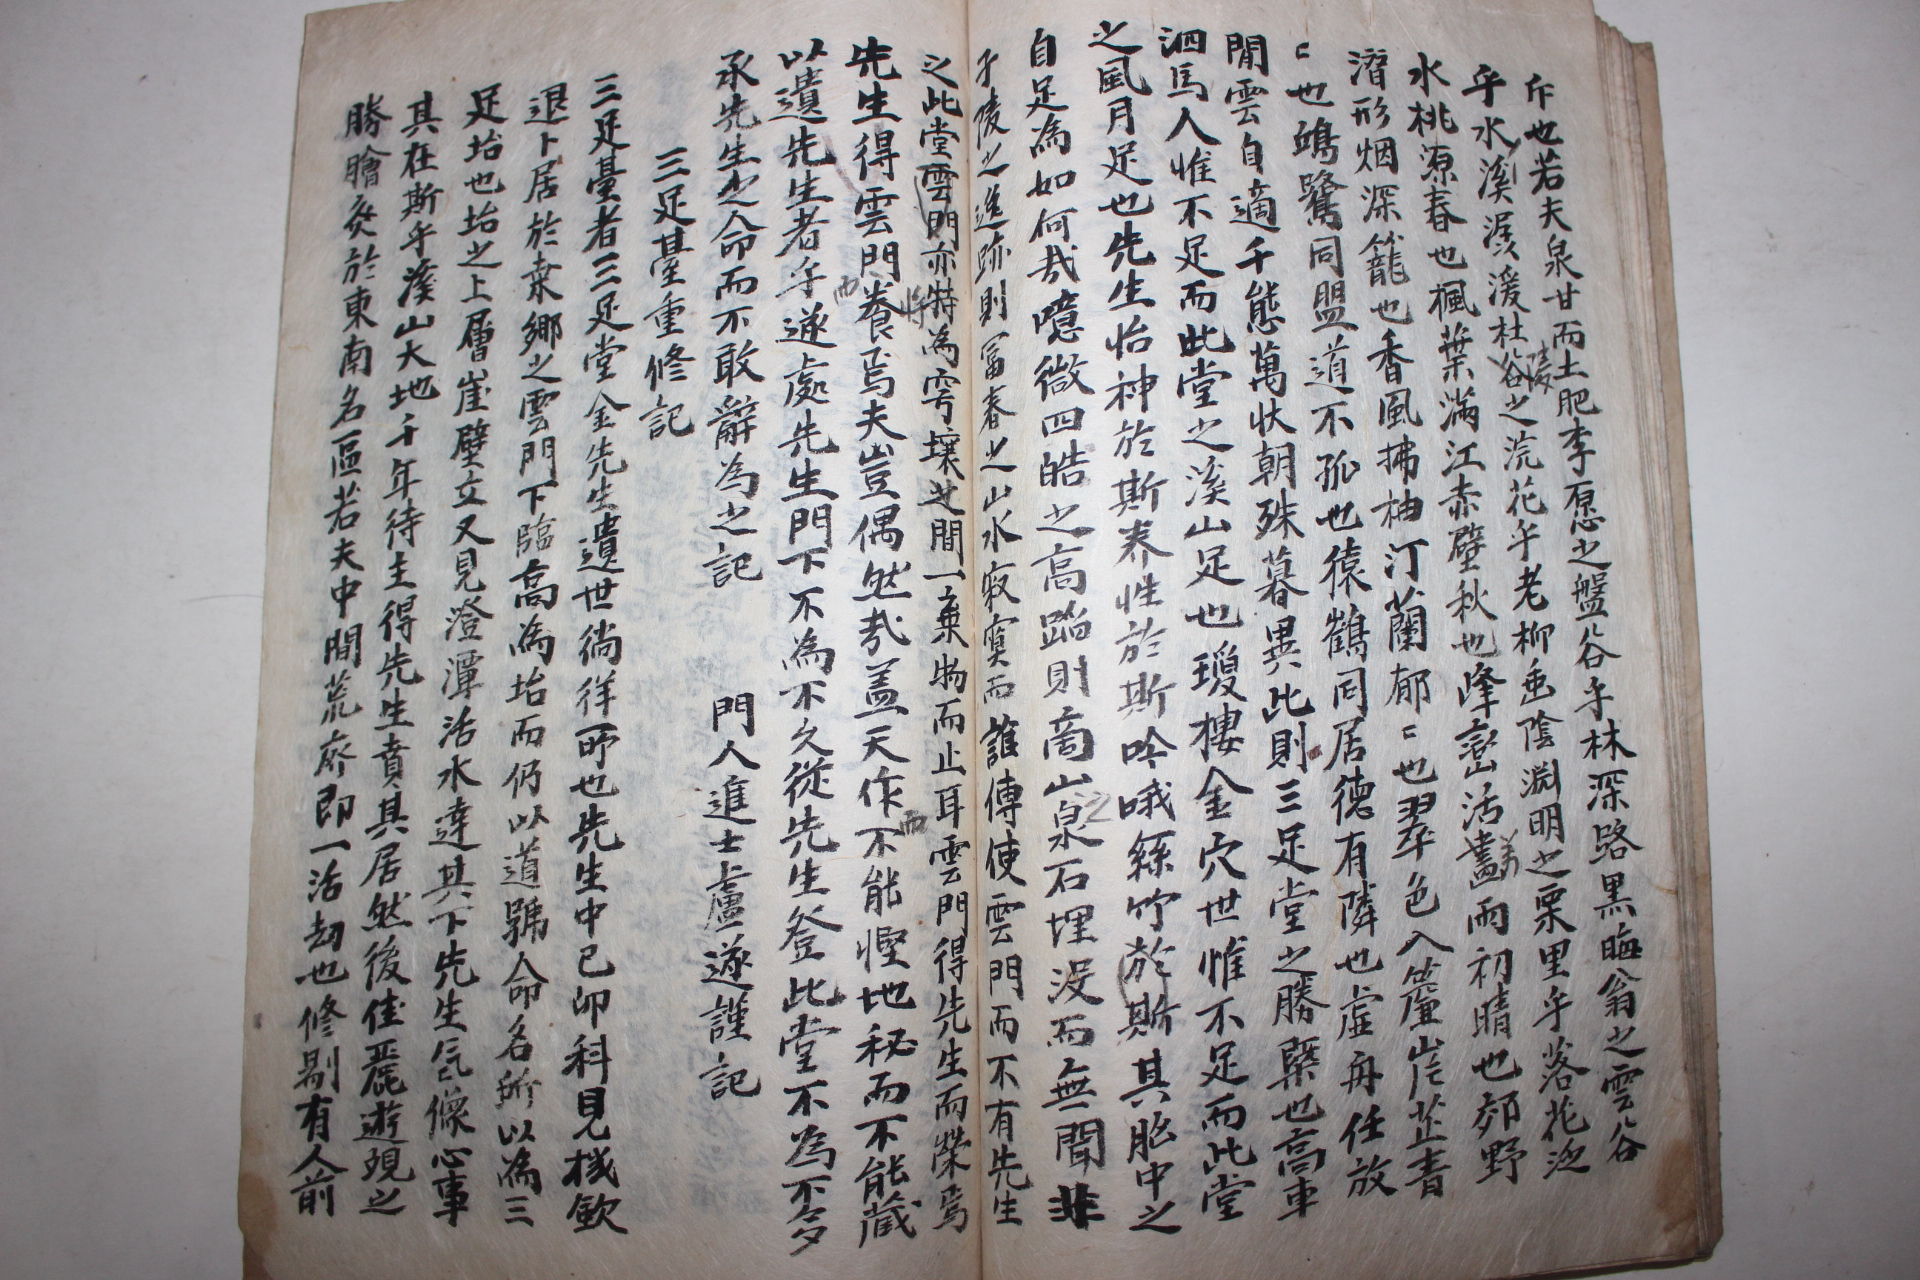 斥也若夫泉甘而土肥李愿之盤谷乎林深路黑晦翁之雲谷
乎水溪潺湲杜陵之浣花乎老柳垂陰淵明之栗里乎落花泛
水桃源春也楓葉滿江赤壁秋也峰巒活畵雨初晴也郊野
潛形烟深籠也香風拂袖汀蘭郁〻也翠色入簾岸芷青
〻也鷗鷺同盟道不孤也猿鶴同居德有隣也虛舟任放
閒雲自適千態萬狀朝殊暮異此則三足堂之勝槩也高車
泗馬人惟不足而此堂之溪山足也瓊樓金穴世惟不足而此堂
之風月足也先生怡神於斯养性於斯吟哦絲竹於斯其胸中之
自足為如何哉噫微四皓之高蹈則商山之泉石埋沒而無聞非
子陵之逸跡則富春之山水寂寞而誰傳使雲門而不有先生
之此堂雲門亦特為穹壤之間一棄物而止耳雲門得先生而榮焉
先生得雲門而養焉夫豈偶然哉盖天作而不能慳地秘而不能藏
以遺先生者乎遂處先生門下不為不久從先生登此堂不為不多
承先生之命而不敢辭為之記 門人進士盧遂謹記
三足基臺重修記
三足臺者三足堂金先生遺世徜徉所也先生中己卯科見機歛
退卜居於桑鄉之雲門下臨高為坮而仍以道號人命名所以為三
足坮也坮之上層崖壁立又見澄潭活水達其下先生氣像心事
其在斯乎溪山大地千年待主得先生賁其居然後佳麗遊現之
勝膾炙於東南名區若夫中間荒廢即一活劫也修剔有人前